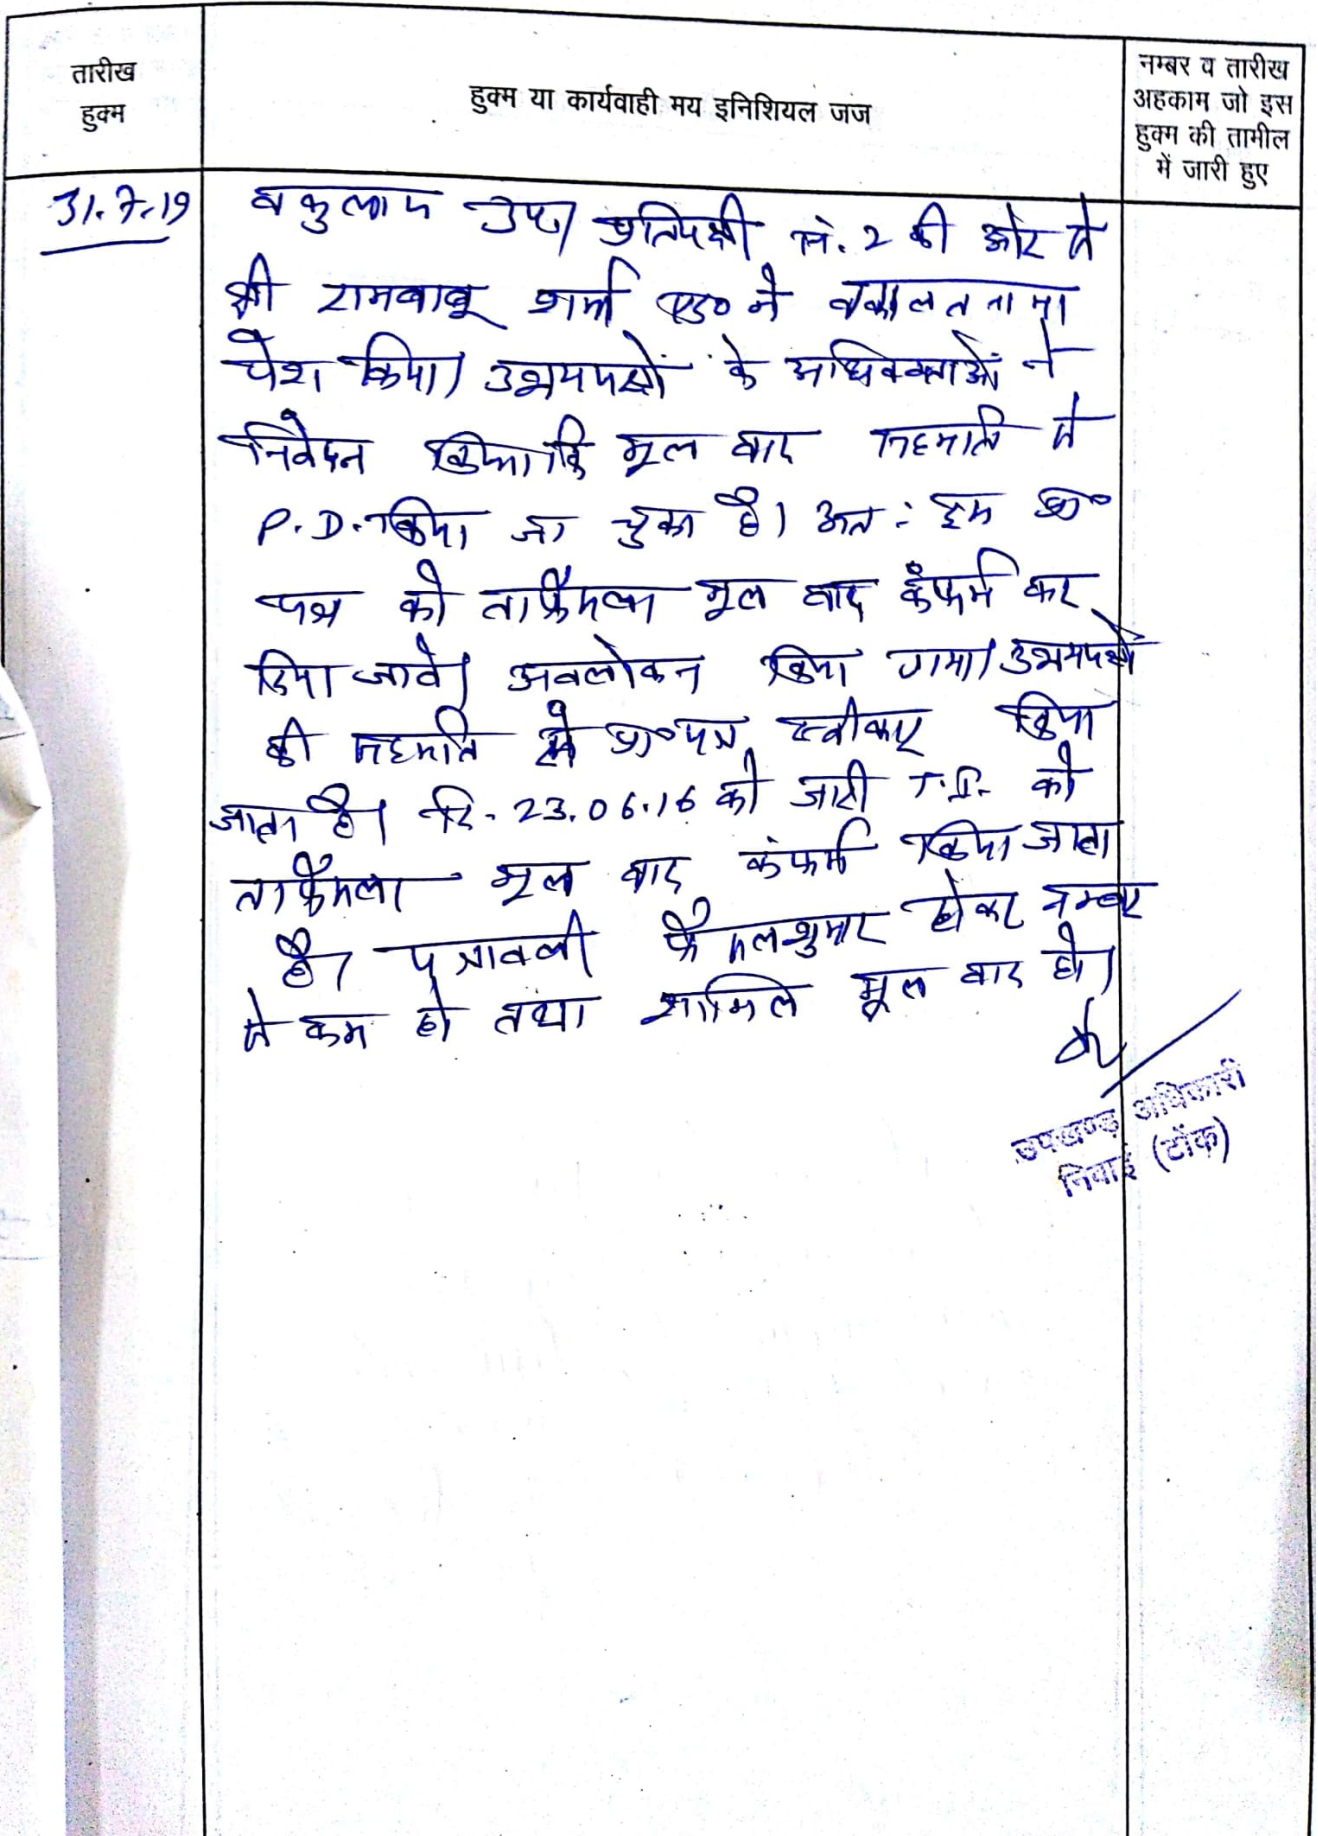 तारीख
हुक्म
हुक्म या कार्यवाही मय इनिशियल जज
नम्बर व तारीख
अहकाम जो इस
हुक्म की तामील
में जारी हुए
31.7.19
वकुलाय उप। प्रतिपक्षी सं. 2 की ओर से
श्री रामबाबू शर्मा एड० ने वकालतनामा
पेश किया। उभयपक्षों के अधिवक्ताओं ने
निवेदन किया कि मूल वाद सहमति से
P.D. किया जा चुका है। अतः इस प्रा०
पत्र को ताफैसला मूल वाद कंफर्म कर
दिया जावे। अवलोकन किया गया। उभयपक्षों
की सहमति से प्रा०पत्र स्वीकार किया
जाता है। दि. 23.06.16 को जारी T.I. को
ताफैसला मूल वाद कंफर्म किया जाता
है। पत्रावली फैसलशुमार होकर नम्बर
से कम हो तथा शामिल मूल वाद हो।
उपखण्ड अधिकारी
निवाई (टोंक)